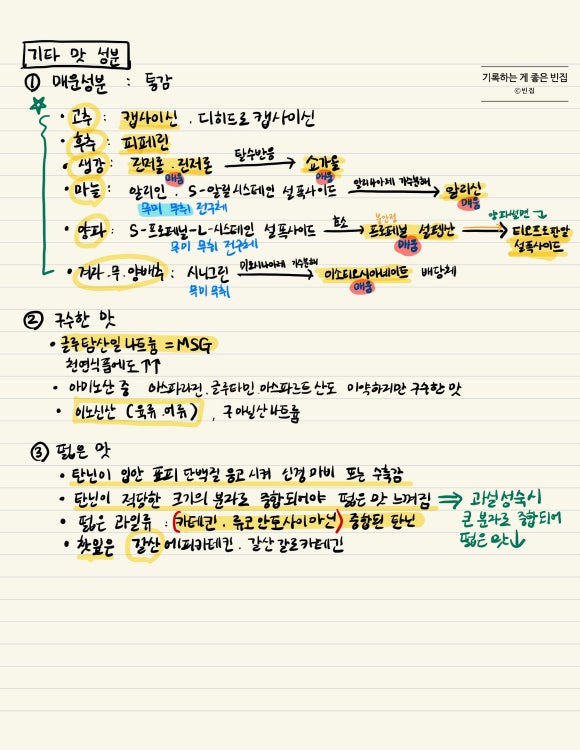 기타 맛 성분
기록하는 게 좋은 빈집
©빈집
① 매운성분 : 통감
☆
• 고추 : 캡사이신 . 디히드로 캡사이신
• 후추 : 피페린
• 생강 : 진저롤 . 진저론 탈수반응 → 쇼가올
매움 매움
• 마늘 : 알리인 . S-알릴시스테인 설폭사이드 알리나아제 가수분해 → 알리신
무미 무취 전구체 매움
• 양파 : S-프로페닐-L-시스테인 설폭사이드 효소 → 불안정 프로페닐 설펜산 양파썰면 → 티오프로판알 설폭사이드
무미 무취 전구체 매움
• 겨자.무.양배추 : 시니그린 미로시나아제 가수분해 → 이소티오시아네이트 배당체
무미 무취 매움
② 구수한 맛
• 글루탐산일나트륨 = MSG
천연식품에도 ↑↑
• 아미노산 중 아스파라긴. 글루타민. 아스파르트산도 미약하지만 구수한 맛
• 이노신산 (육류.어류) , 구아닐산나트륨
③ 떫은 맛
• 탄닌이 입안 표피 단백질 응고시켜 신경마비 또는 수축감
• 탄닌이 적당한 크기의 분자로 중합되어야 떫은 맛 느껴짐 ⇒ 과실성숙시
큰 분자로 중합되어
떫은 맛↓
• 떫은 과일류 : (카테킨 . 류코안토시아니딘) 중합된 탄닌
• 찻잎은 갈산 에피카테킨 . 갈산 갈로카테긴